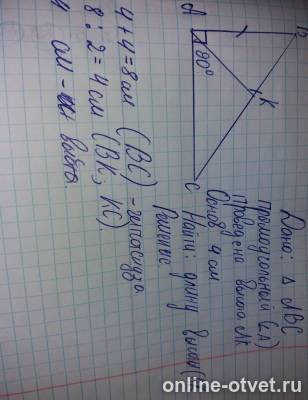 Дано: △ ABC
прямоугольный (∠A)
проведена высота AK
Основ 4 см
Найти: длину высоты
Решение
4+4=8см (BC) - гипотенуза.
8:2=4см (BK; KC)
4 см - высота.
A
B
K
C
90°
online-otvet.ru